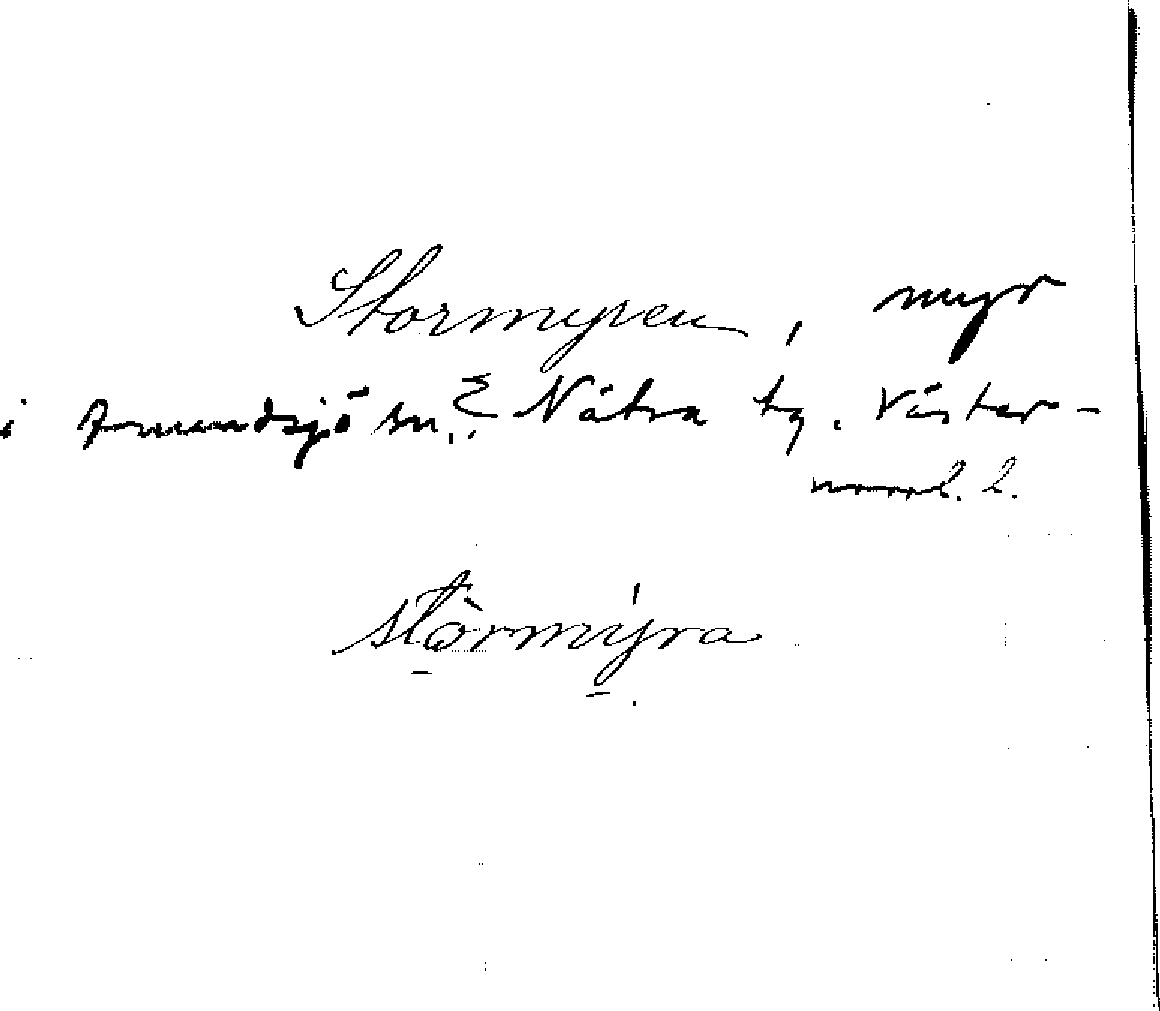 Stormyren, myr
i Anundsjö sn. Nätra tg. Väster-
norrl. l.
stòrmýra